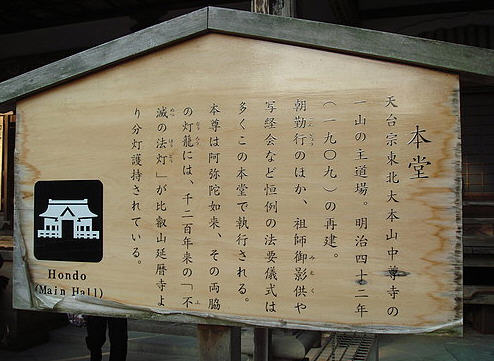 本堂
天台宗東北大本山中尊寺の
一山の主道場。明治四十二年
(一九〇九)の再建。
朝勤行のほか、祖師御影供や
写経会など恒例の法要儀式は
多くこの本堂で執行される。
本尊は阿弥陀如来、その両脇
の灯籠には、千二百年来の「不
滅の法灯」が比叡山延暦寺よ
り分灯護持されている。
Hondo
(Main Hall)